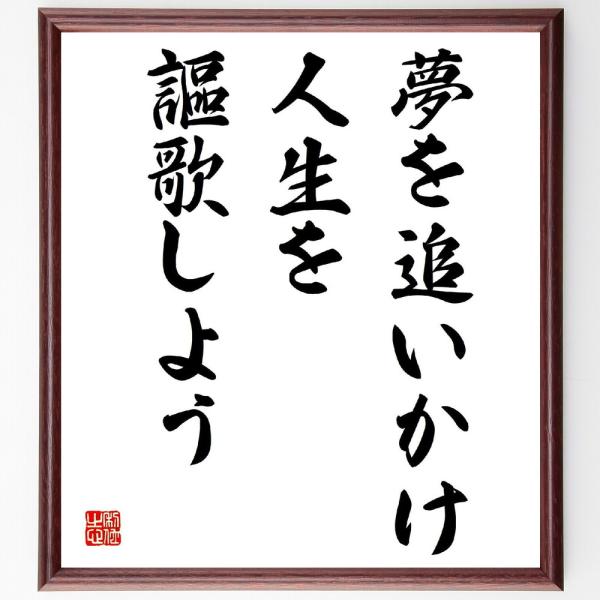 夢を追いかけ
人生を
謳歌しよう